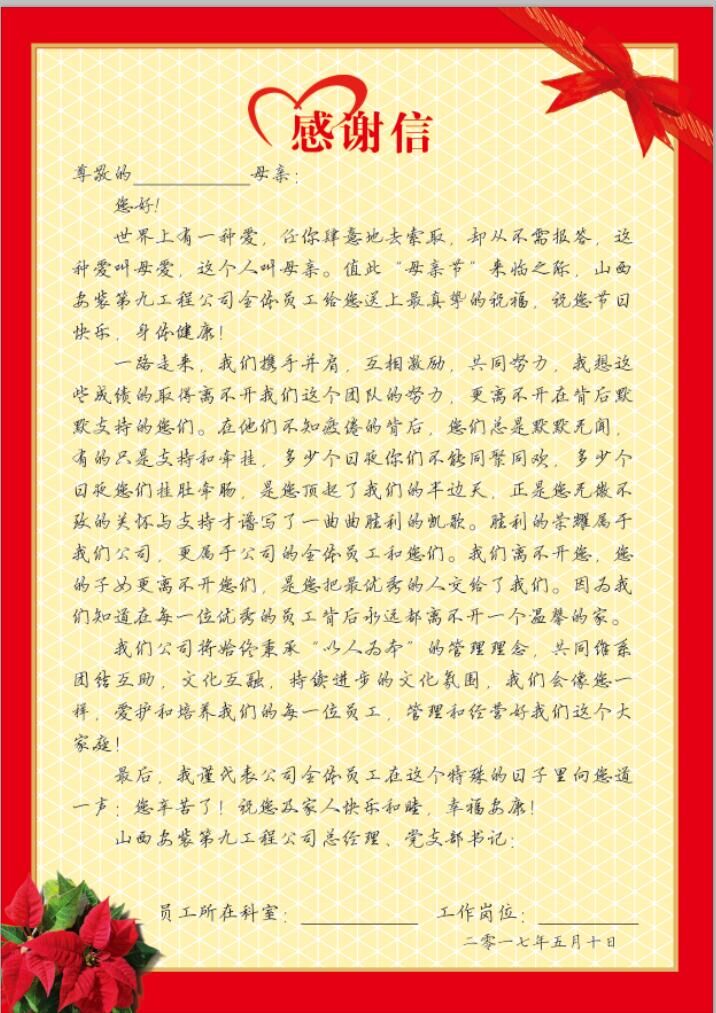 感谢信
尊敬的__________母亲：
您好！
世界上有一种爱，任你肆意地去索取，却从不需报答，这
种爱叫母爱，这个人叫母亲。值此“母亲节”来临之际，山西
安装第九工程公司全体员工给您送上最真挚的祝福，祝您节日
快乐，身体健康！
一路走来，我们携手并肩，互相激励，共同努力，我想这
些成绩的取得离不开我们这个团队的努力，更离不开在背后默
默支持的您们。在他们不知疲倦的背后，您们总是默默无闻，
有的只是支持和牵挂，多少个日夜你们不能同聚同欢，多少个
日夜您们挂肚牵肠，是您顶起了我们的半边天，正是您无微不
致的关怀与支持才谱写了一曲曲胜利的凯歌。胜利的荣耀属于
我们公司，更属于公司的全体员工和您们。我们离不开您，您
的子女更离不开您们，是您把最优秀的人交给了我们。因为我
们知道在每一位优秀的员工背后永远都离不开一个温馨的家。
我们公司将始终秉承“以人为本”的管理理念，共同维系
团结互助，文化互融，持续进步的文化氛围，我们会像您一
样，爱护和培养我们的每一位员工，管理和经营好我们这个大
家庭！
最后，我谨代表公司全体员工在这个特殊的日子里向您道
一声：您辛苦了！祝您及家人快乐和睦，幸福安康！
山西安装第九工程公司总经理、党支部书记：
员工所在科室：__________ 工作岗位：__________
二零一七年五月十日